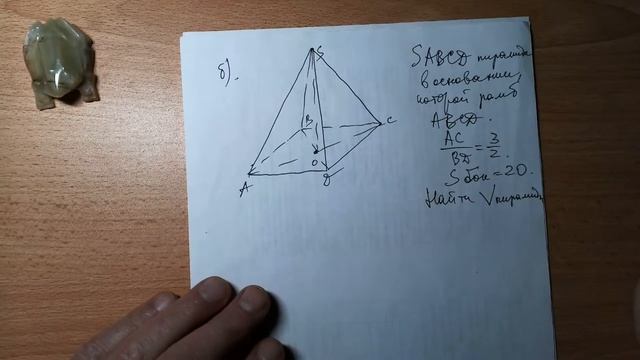 б).
S
B
C
O
A
D
SABCD пирамида
в основании,
которой ромб
ABCD.
AC
BD
= 3
2.
S бок = 20.
Найти V пирамид